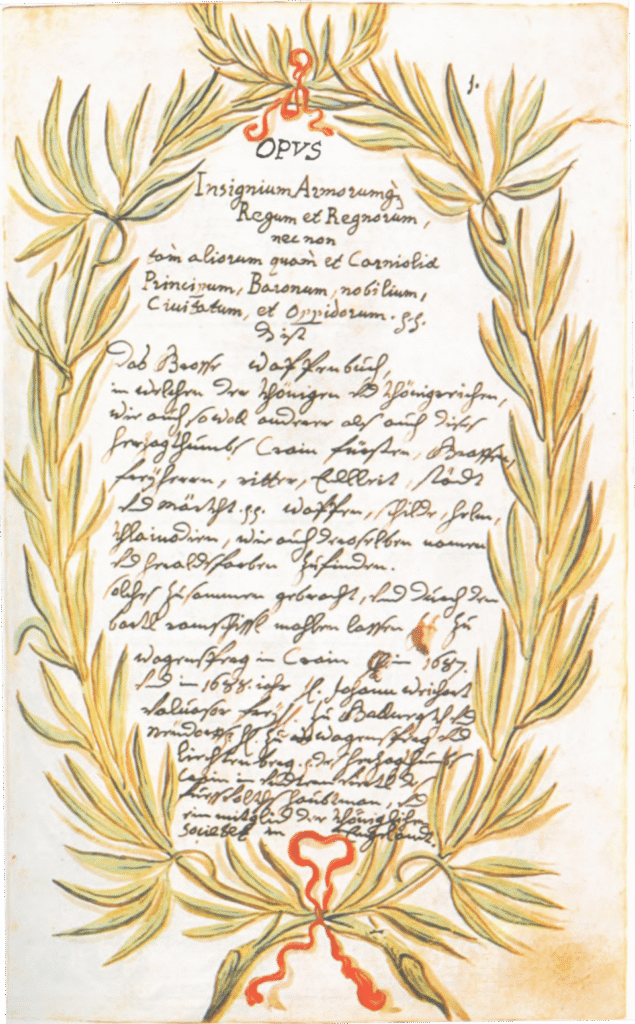 1.
OPVS
Insignium Armorumq̀,
Regum et Regnorum,
nec non
tam̀ aliorum quam̀ et Carnioliæ
Principum, Baronum, nobilium,
Civitatum, et Oppidorum.
Dißt
das Grosse Waffenbuch,
in welchen der Khönigen und Khönigreichen,
wie auch sowol anderer als auch dises
herzogthumbs Crain fürsten, Graffen,
freyherrn, ritter, Edlleit, städt
und märckht. pp. waffen, schilde, helm,
Khleinodien, wie auch deroselben namen
und heraldsfarben zu finden.
solches zusammen gebracht, und durch den
mahlen lassen zu
wagensperg in Crain im 1687.
und im 1688. iahr H. Johann Weichart
Valvasor freyh. zu
zu wagensperg und
liechtenberg. herzogthumbs
Crain in
haubtman, und
ein mitglid der Khöniglichen
Societet in Engelandt.